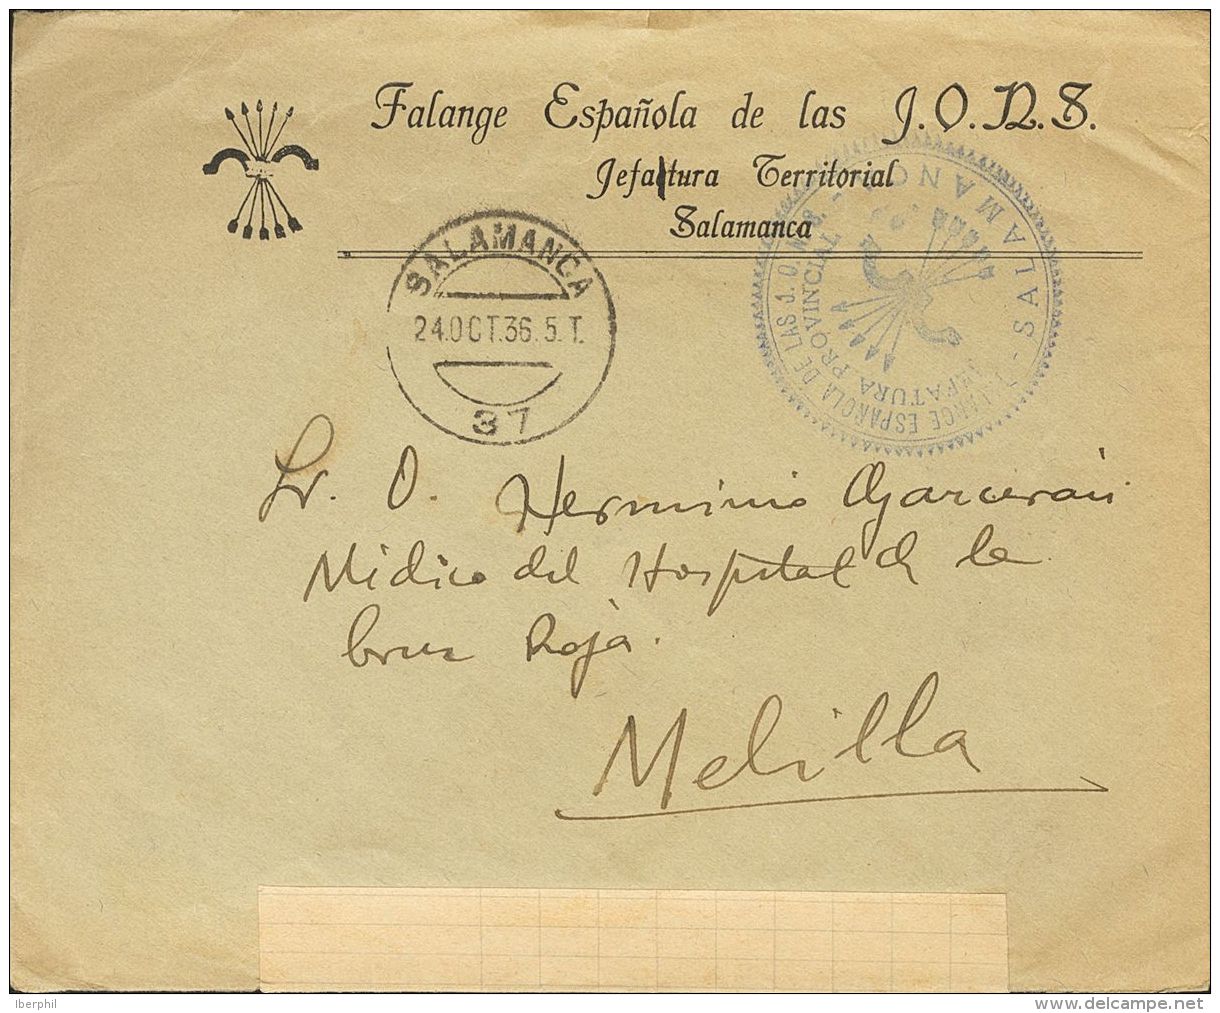 Falange Española de las J.O.N.S.
Jefatura Territorial
Salamanca
SALAMANCA
24.OCT.36.5.T.
37
ANGE ESPAÑOLA DE LAS J.O.N.S. - SALAMANCA -
JEFATURA PROVINCIAL
Sr. D. Herminio Garcerán
Médico del Hospital de la
Cruz Roja.
Melilla
Iberphil
delcampe.net